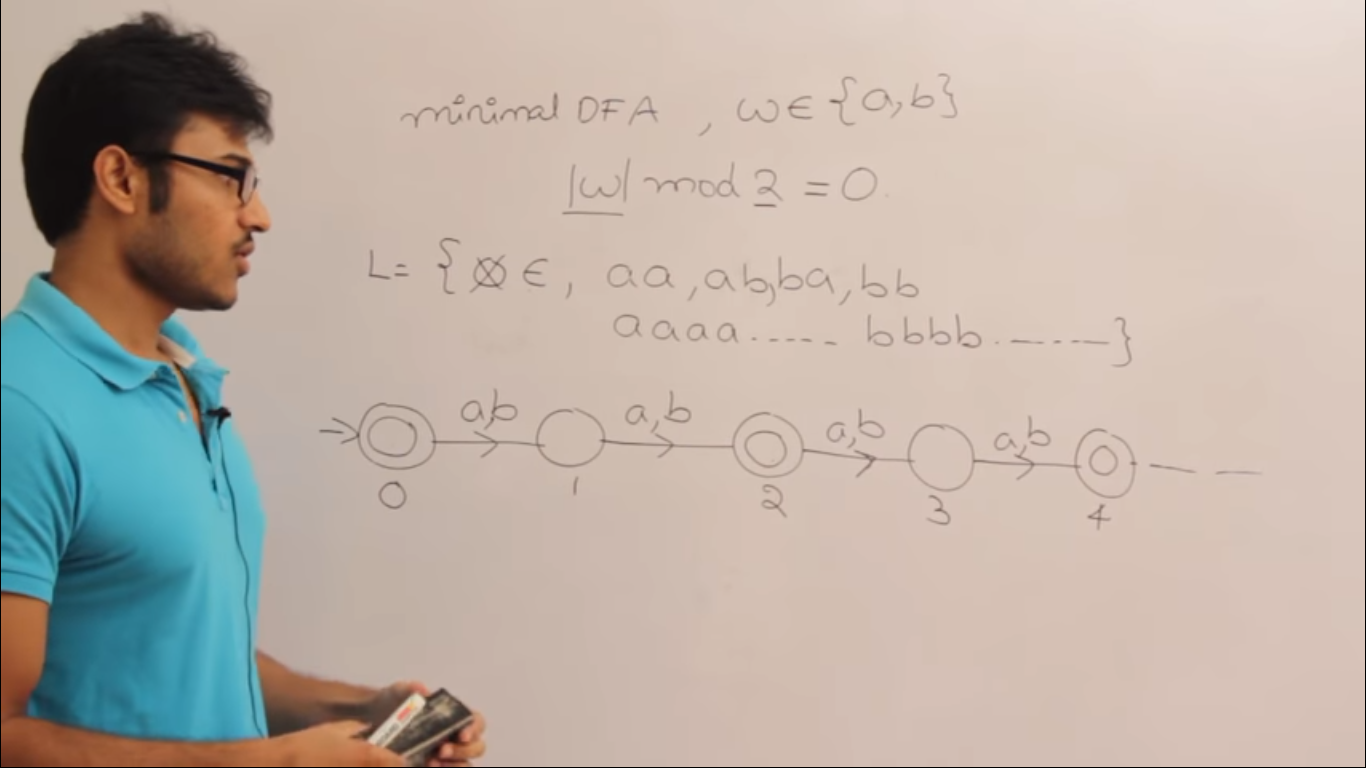 minimal DFA , ω∈{a,b}
|ω| mod 2 = 0.
L= { ∈, aa,ab,ba,bb
aaaa..... bbbb.-----}
a,b a,b a,b a,b
0 1 2 3 4